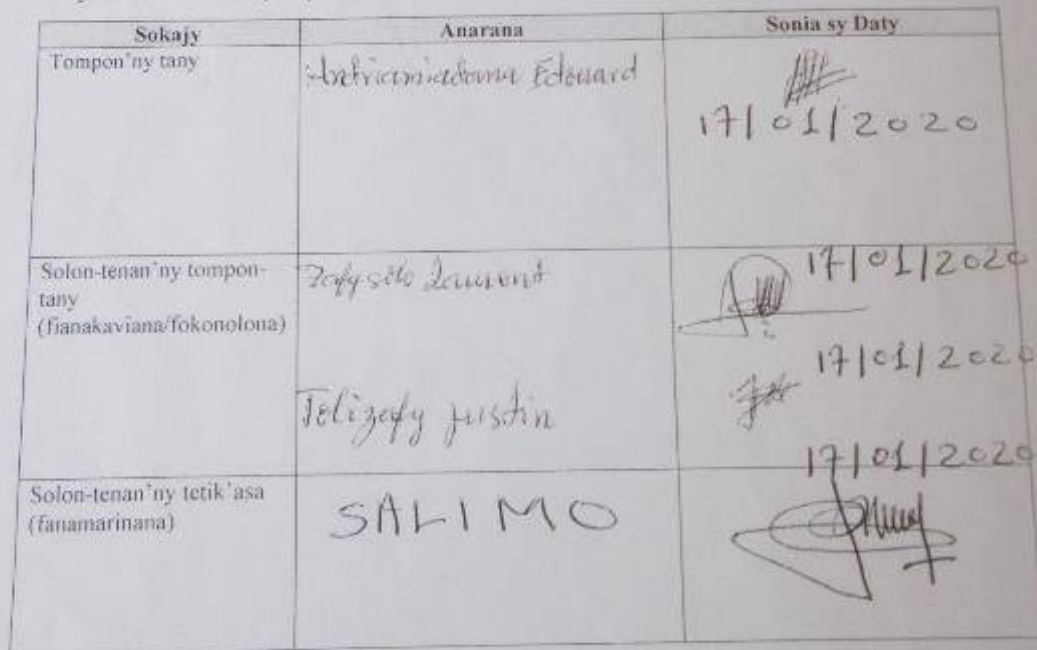 Sokajy Anarana Sonia sy Daty
Tompon'ny tany Edouard
17/01/2020
Solon-tenan'ny tompon-
tany
(fianakaviana/fokonolona)
Zafysolo Laurent
17/01/2020
Telizafy Justin
17/01/2020
17/01/2020
Solon-tenan'ny tetik'asa
(fanamarinana)
SALIMO